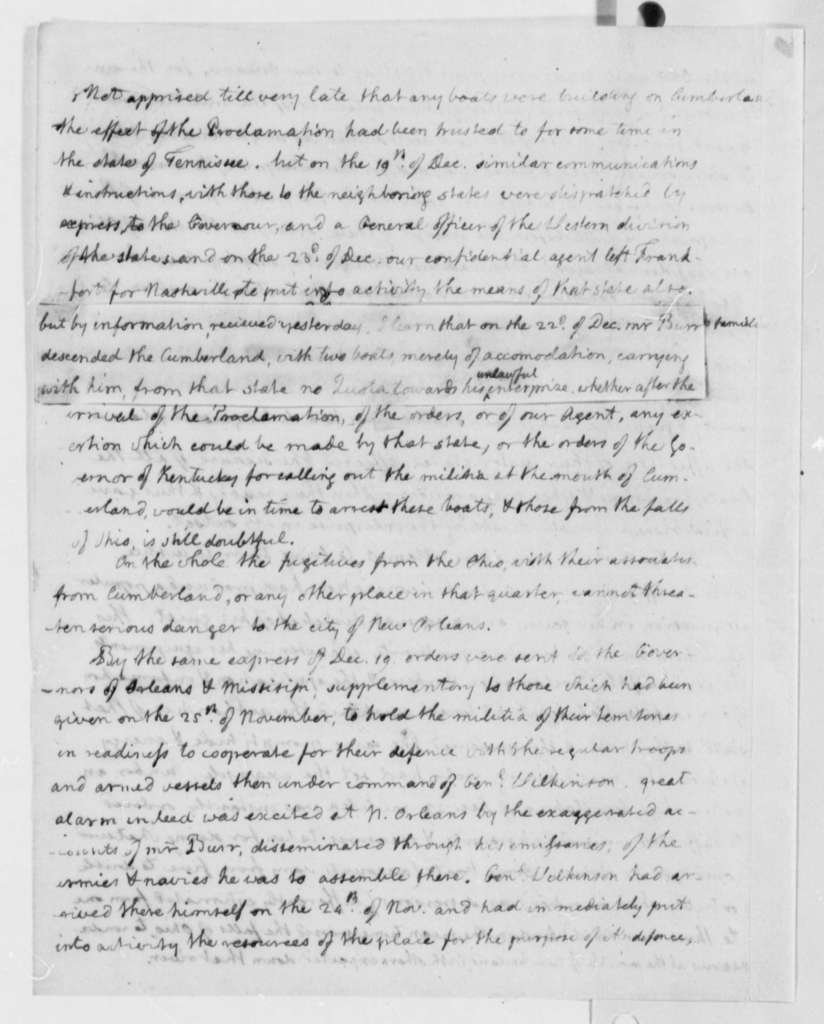 Not apprised till very late that any boats were building on Cumberland
the effect of the Proclamation had been trusted to for some time in
the state of Tennissee. but on the 19th of Dec. similar communications
& instructions, with those to the neighboring states were dispatched by
express, to the Governour, and a General officer of the Western division
of the state, and on the 23d of Dec. our confidential agent left Frank-
-fort for Nashville to put into activity the means of that state also.
but by information, recieved yesterday, I learn that on the 22d of Dec. mr Burr
descended the Cumberland, with two boats merely of accomodation, carrying
with him, from that state no Quota towards his unlawful enterprize. whether after the
arrival of the Proclamation, of the orders, or of our Agent, any ex-
ertion which could be made by that state, or the orders of the Go-
vernor of Kentucky for calling out the militia at the mouth of Cum-
erland, would be in time to arrest these boats, & those from the falls
of Ohio, is still doubtful.
On the whole the fugitives from the Ohio, with their associates
from Cumberland, or any other place in that quarter, cannot threa-
-ten serious danger to the city of New Orleans.
By the same express of Dec. 19. orders were sent to the Gover-
-nors of Orleans & Missisipi, supplementory to those which had been
given on the 25th of November, to hold the militia of their territories
in readiness to cooperate for their defence with the regular troops
and armed vessels then under command of Genl. Wilkinson. great
alarm indeed was excited at N. Orleans by the exaggerated ac-
-counts of mr Burr, disseminated through his emissaries, of the
armies & navies he was to assemble there. Genl. Wilkinson had ar-
rived there himself on the 24th of Nov. and had immediately put
into activity the resources of the place for the purpose of it's defence,